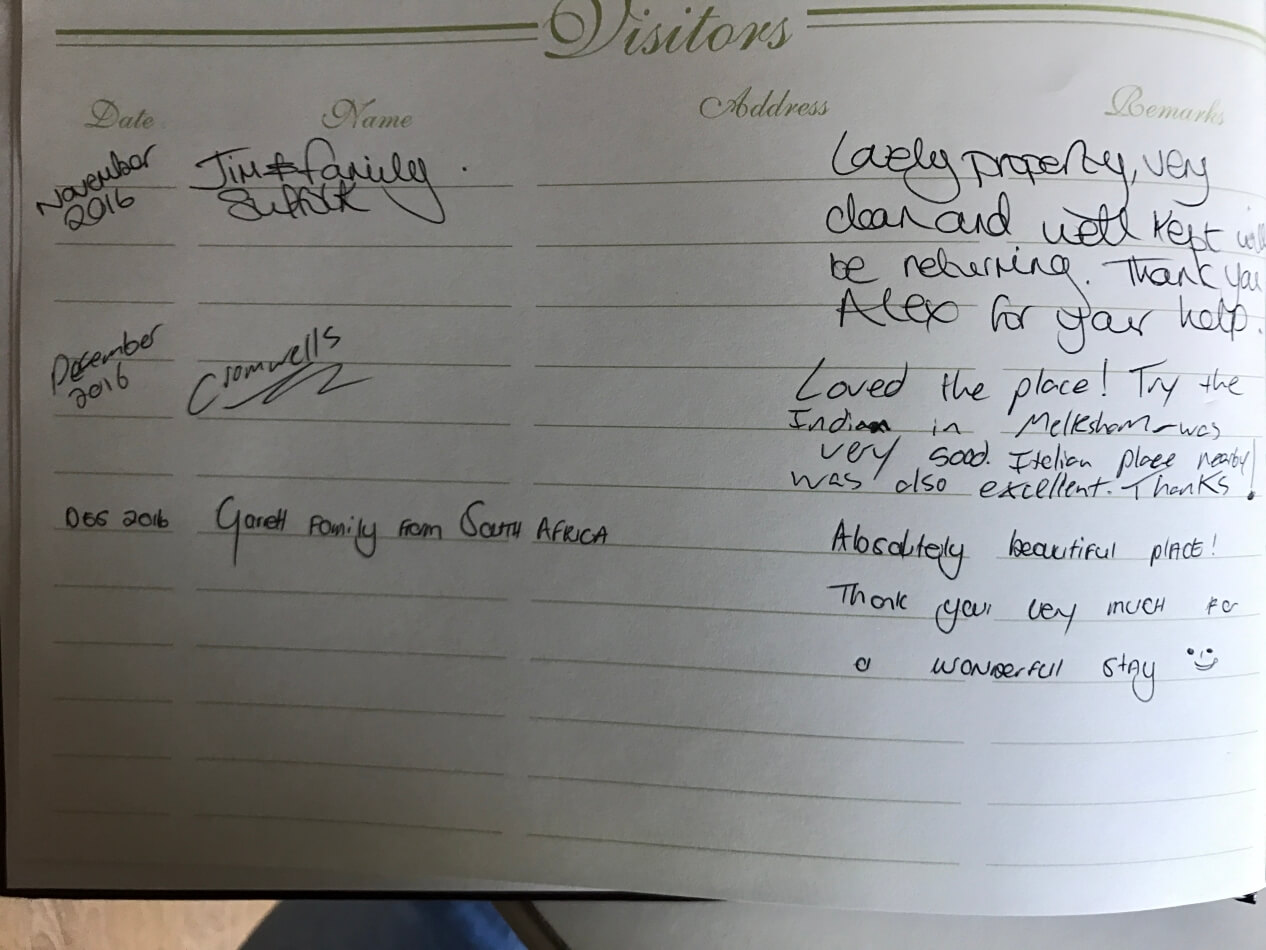 Visitors
Date Name Address Remarks
November
2016
Jim & family.
Suffolk
Lovely property, very
clean and well kept will
be returning. Thank you
Alex for your help.
December
2016
Cromwells
Loved the place! Try the
Indian in Melksham - was
very good. Italian place nearby
was also excellent. Thanks!
DES 2016
Garett Family from SOUTH AFRICA
Absolutely beautiful place!
Thank you very much for
a wonderful stay